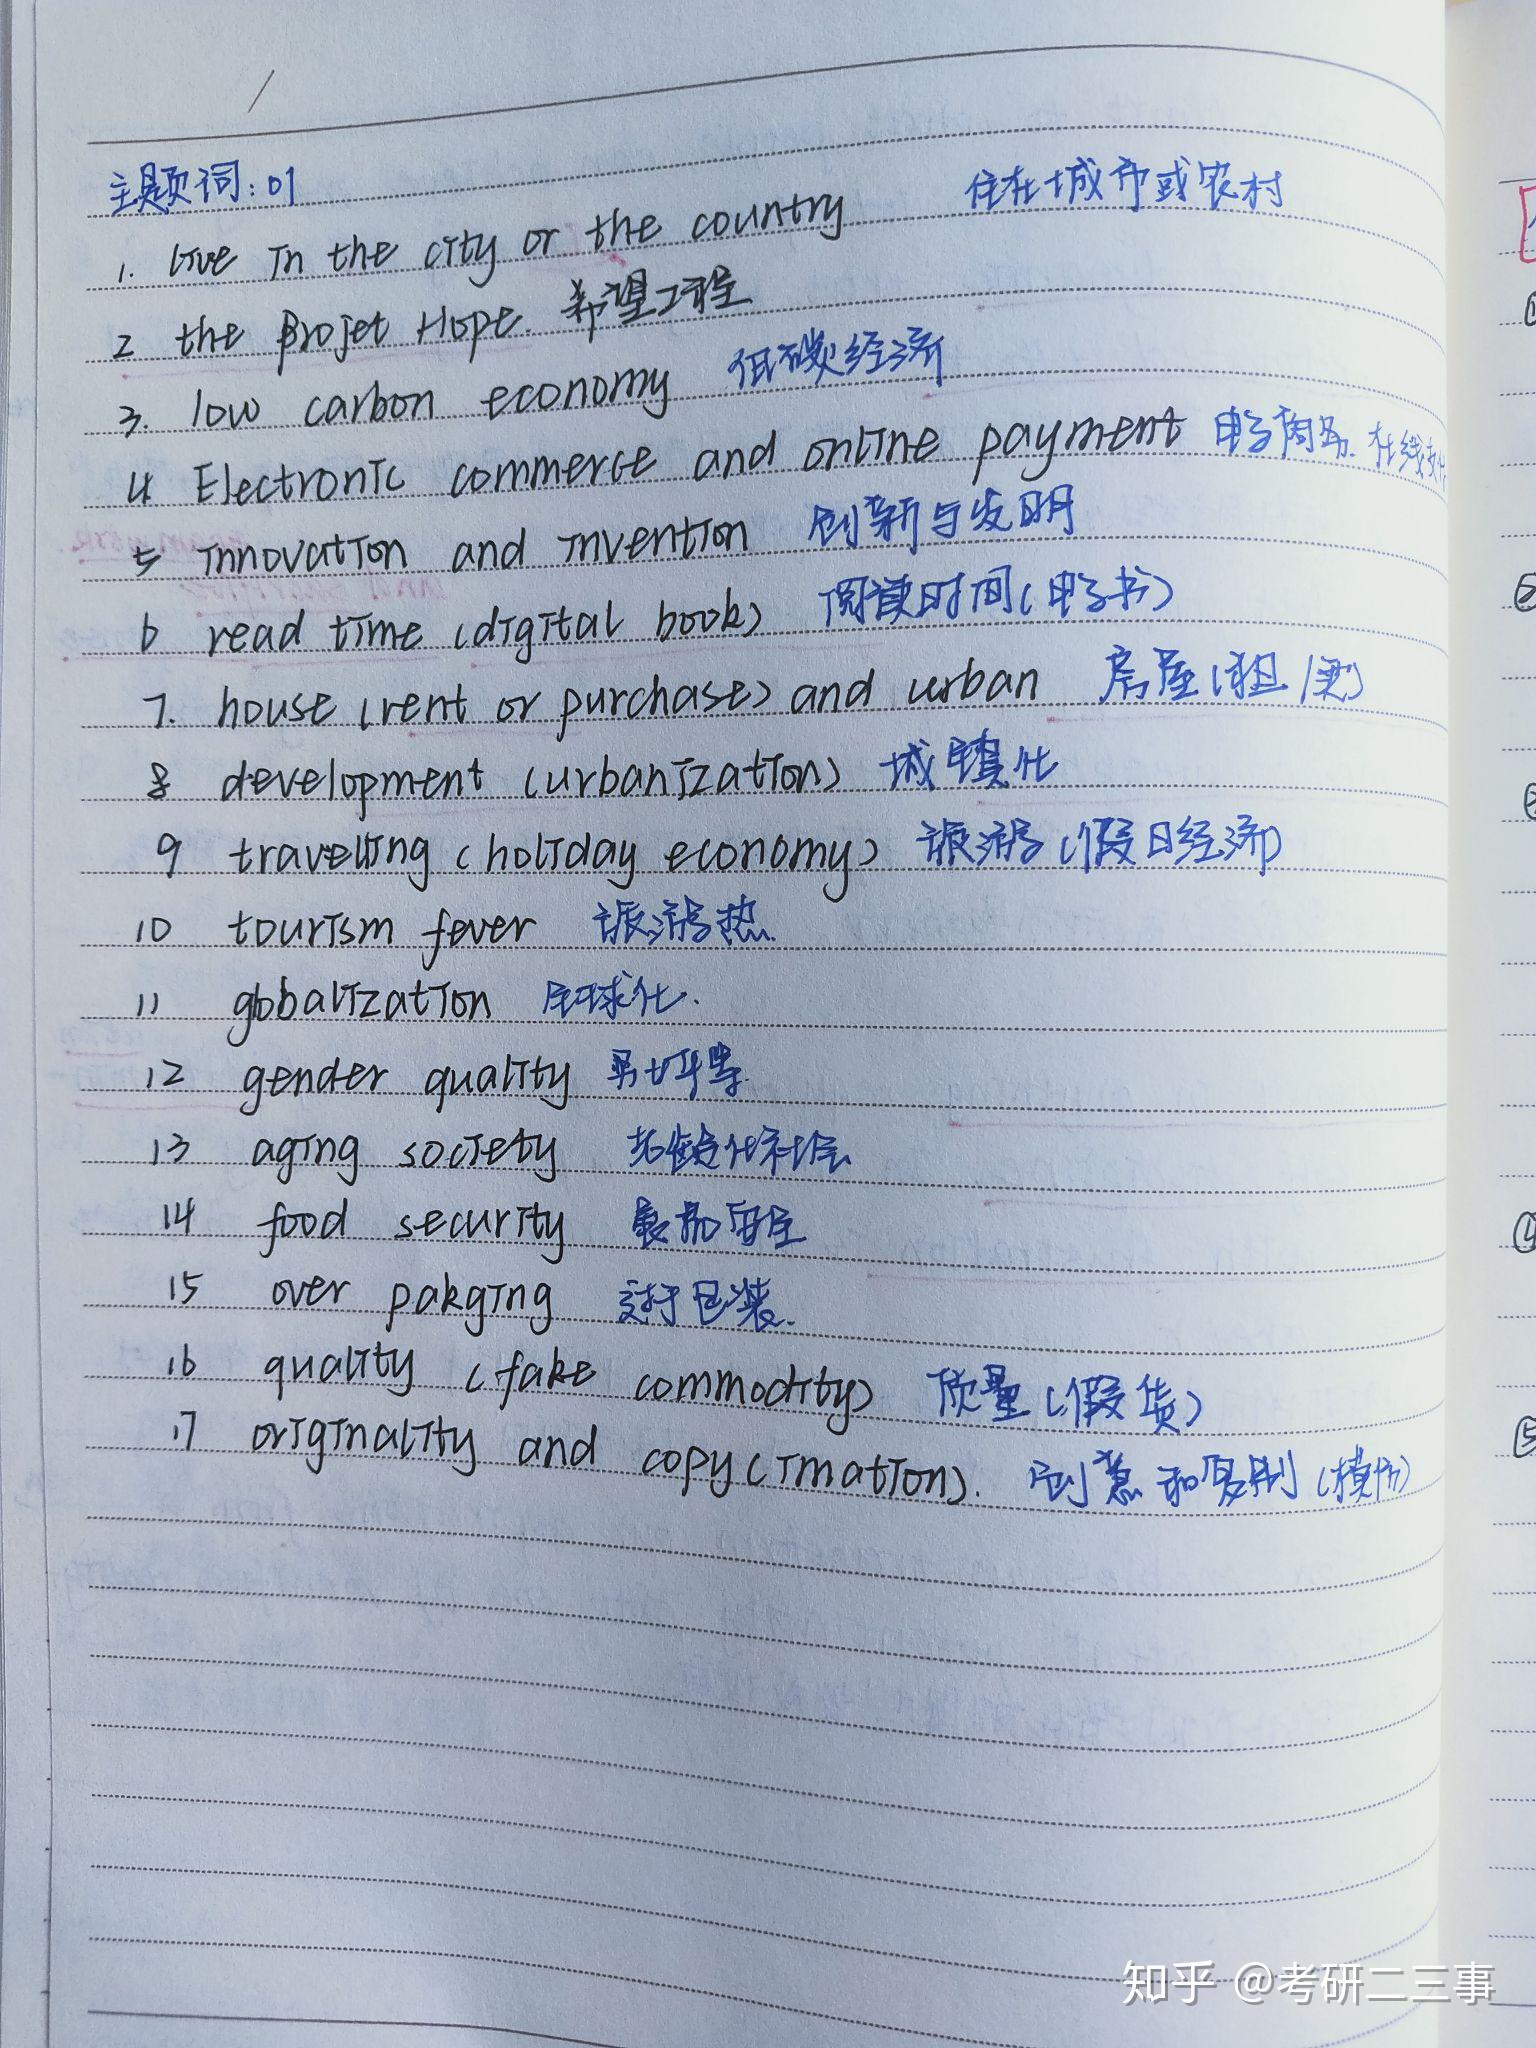 主题词:01
1. live in the city or the country 住在城市或农村
2 the projet Hope. 希望工程
3. low carbon economy 低碳经济
4 Electronic commerce and online payment 电子商务. 在线支付
5 innovation and invention 创新与发明
6 read time (digital book) 阅读时间(电子书)
7. house (rent or purchase) and urban 房屋(租/买)
8 development (urbanization) 城镇化
9 traveling (holiday economy) 旅游(假日经济)
10 tourism fever 旅游热.
11 globalization 全球化.
12 gender quality 男女平等.
13 aging society 老龄化社会
14 food security 食品安全
15 over pakging 过于包装.
16 quality (fake commodity) 质量(假货)
17 originality and copy (imation). 创意和复制(模仿)
知乎 @考研二三事